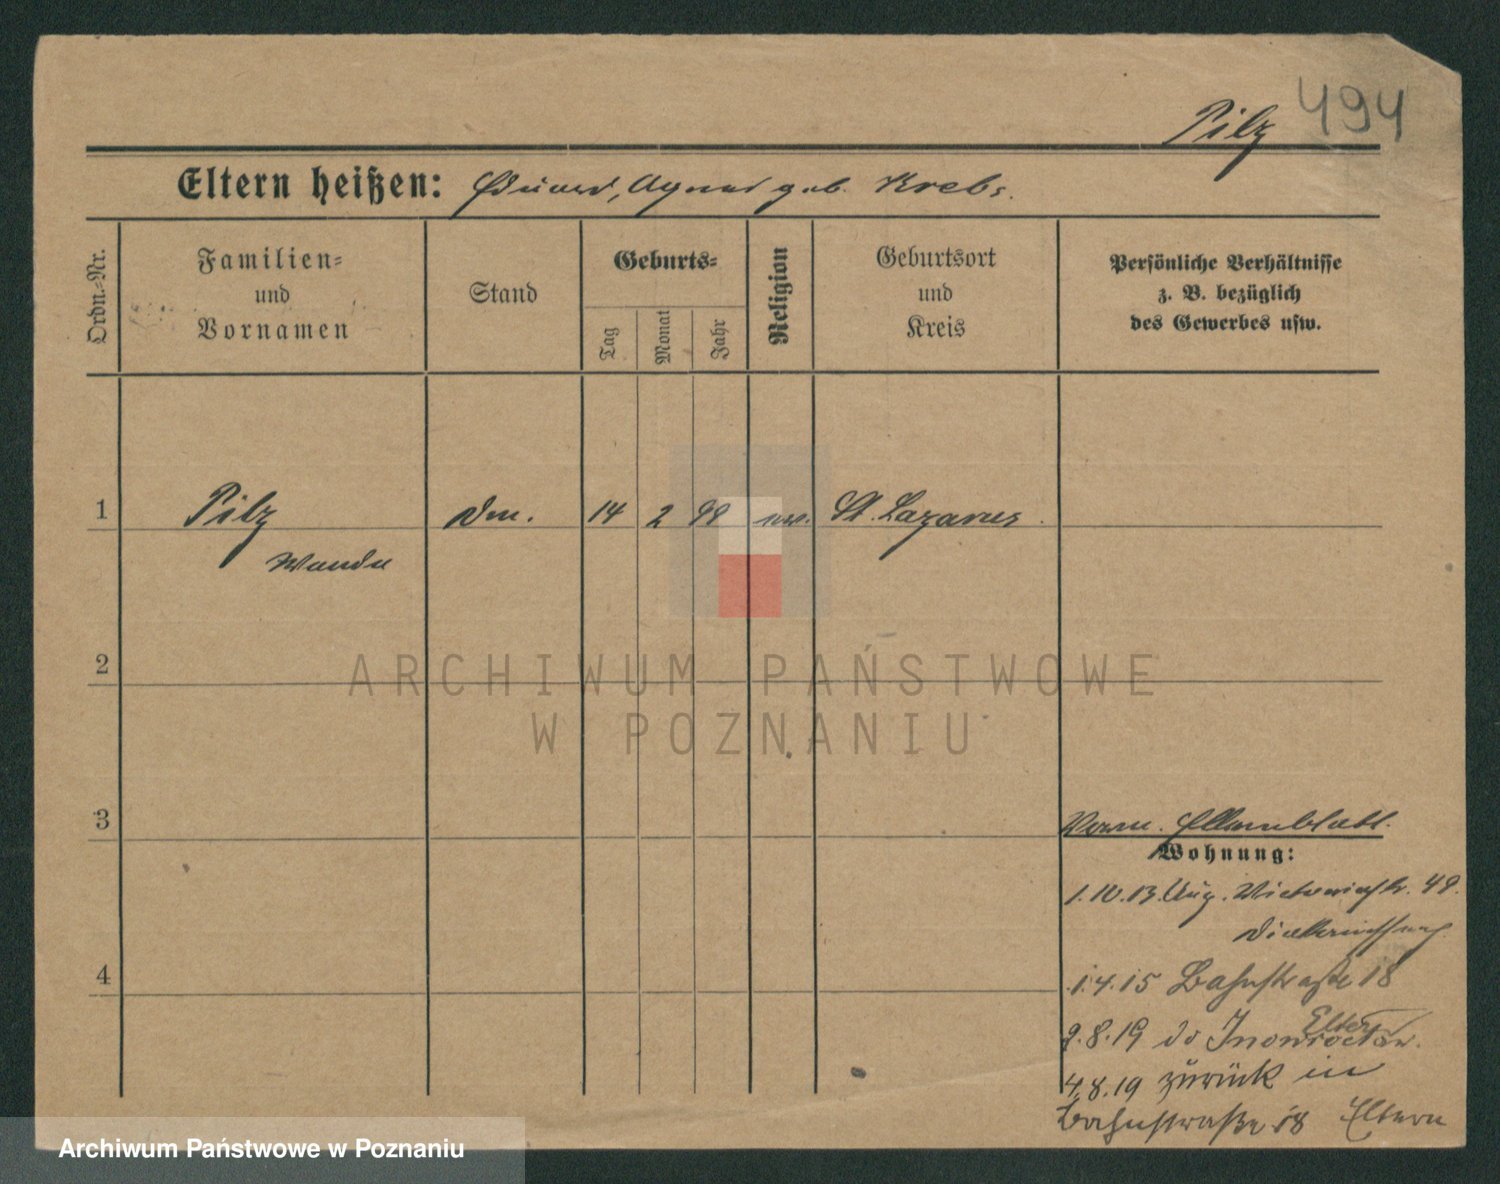 494
Pilz
Eltern heißen: Eduard, Agnes geb. Krebs.
Ordn.-Nr.
Familien-
und
Vornamen
Stand
Geburts-
Tag
Monat
Jahr
Religion
Geburtsort
und
Kreis
Persönliche Verhältnisse
z. B. bezüglich
des Gewerbes usw.
1 Pilz 14 2 98 St. Lazarus.
Wanda
2
ARCHIWUM PAŃSTWOWE
W POZNANIU
3
Wohnung:
1.10.13. Aug. Victoriastr. 49.
4
1.4.15 Bahnstraße 18
Eltern
2.8.19 do Inowrocław.
4.8.19 zurück in
Bahnstraße 18 Eltern
Archiwum Państwowe w Poznaniu